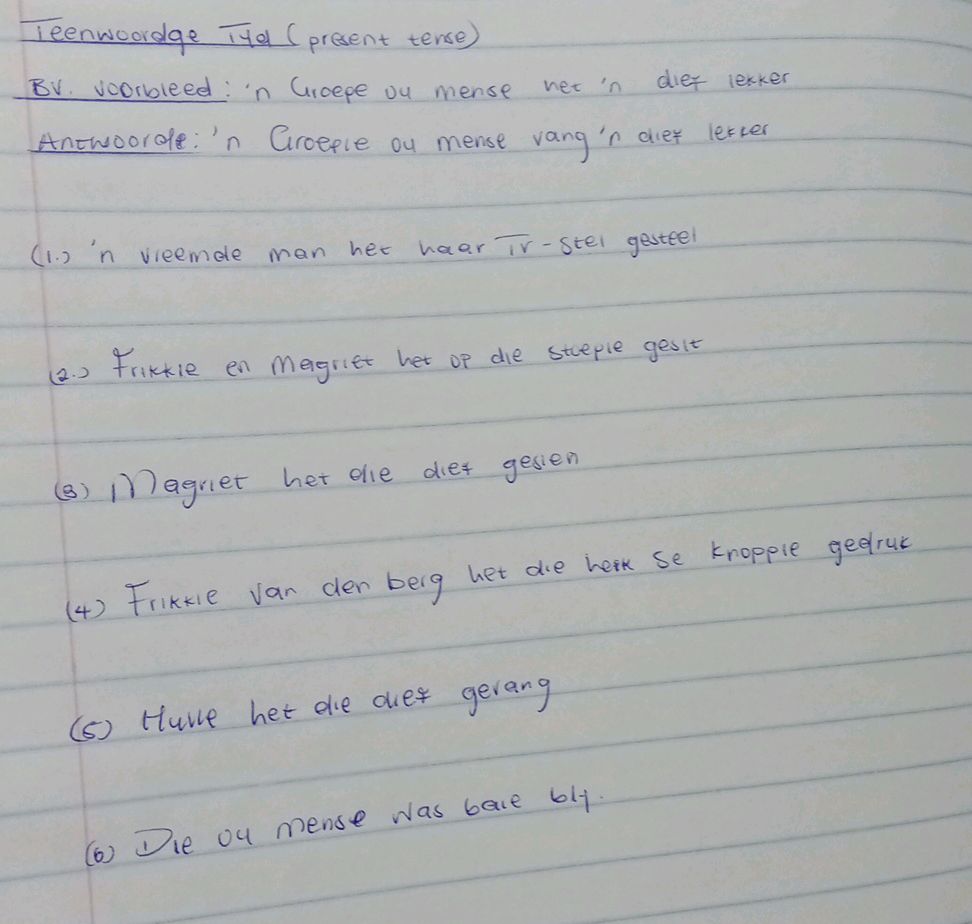 Teenwoordge Tyd (present tense)
BV. voorbleed: 'n Groepe ou mense het 'n dief lekker
Antwoorde: 'n Groepie ou mense vang 'n dief lekker
(1.) 'n vreemde man het haar TV-stel gesteel
(2.) Frikkie en Magriet het op die stoepie gesit
(3) Magriet het die dief gesien
(4) Frikkie van den berg het die hek se knoppie gedruk
(5) Hulle het die dief gevang
(6) Die ou mense was baie bly.